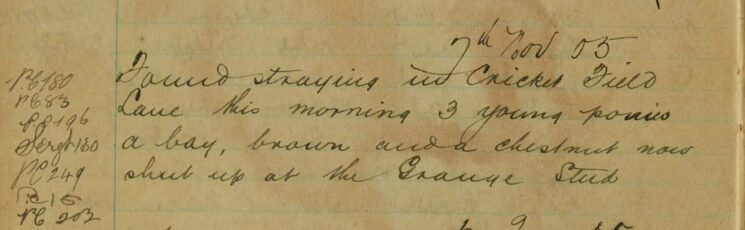 7th Nov. 05
PC 180 Found straying in Cricket Field
PC 83 Lane this morning 3 young ponies
PC 196 a bay, brown and a chestnut now
Sergt 130
PC 249 shut up at the Grange Stud
PC 15
PC 202